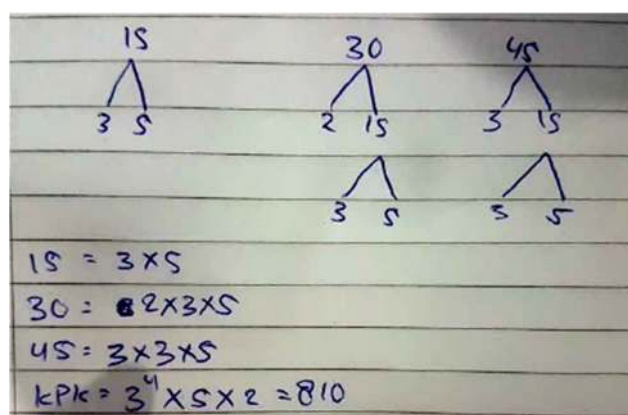 15 30 45
3 5 2 15 3 15
3 5 3 5
15 = 3×5
30 = 2×3×5
45 = 3×3×5
KPK = 3⁴ × 5 × 2 = 810